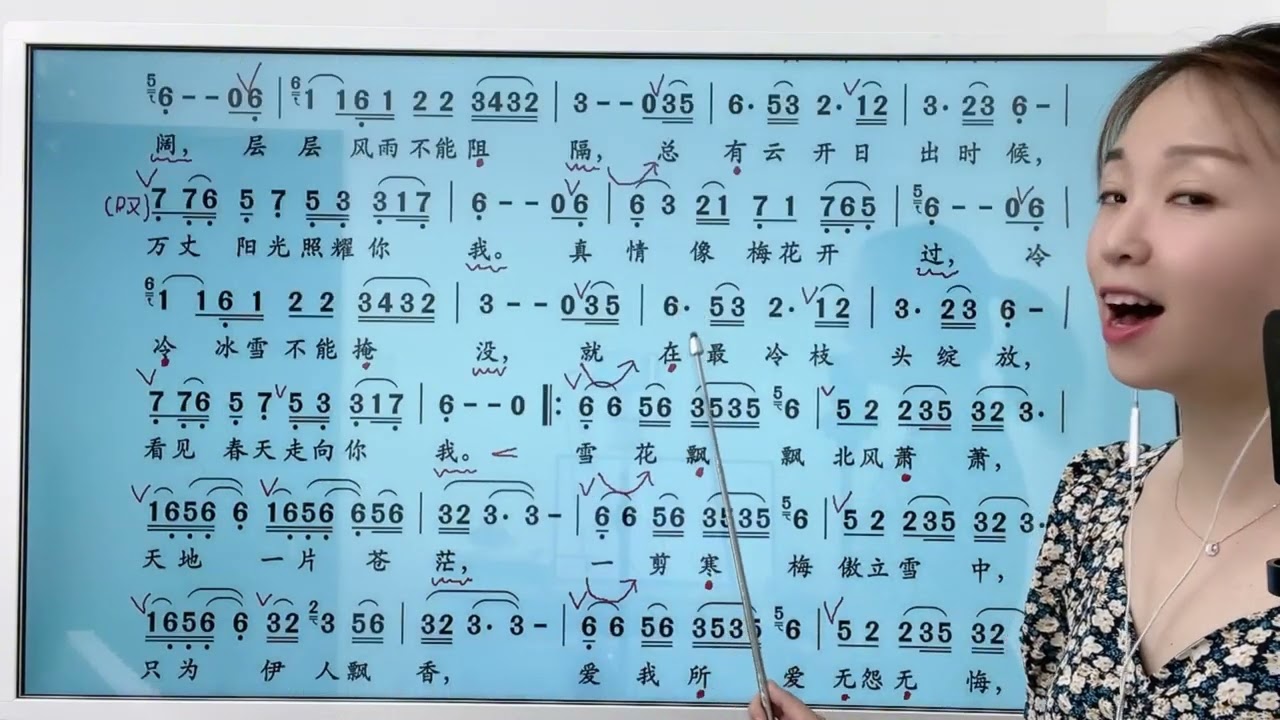 5 6 - - 0 6 | 6 1 1 6 1 2 2 3432 | 3 - - 0 35 | 6· 53 2· 12 | 3· 23 6 - |
阔， 层 层 风雨不能阻 隔， 总 有云开日 出时候，
7 76 5 7 5 3 317 | 6 - - 0 6 | 6 3 21 7 1 765 | 5 6 - - 0 6 |
万丈 阳光照耀你 我。 真 情 像 梅花开 过， 冷
6 1 1 6 1 2 2 3432 | 3 - - 0 35 | 6· 53 2· 12 | 3· 23 6 - |
冷 冰雪不能掩 没， 就 在最 冷枝 头绽放，
7 76 5 7 5 3 317 | 6 - - 0 ‖: 6 6 56 3535 5 6 | 5 2 235 32 3· |
看见 春天走向你 我。 雪 花 飘 飘 北风萧 萧，
1656 6 1656 656 | 32 3· 3 - | 6 6 56 3535 5 6 | 5 2 235 32 3·
天地 一片 苍 茫， 一 剪 寒 梅 傲立雪 中，
1656 6 32 2 3 56 | 32 3· 3 - | 6 6 56 3535 5 6 | 5 2 235 32
只为 伊 人飘 香， 爱 我 所 爱 无怨无 悔，